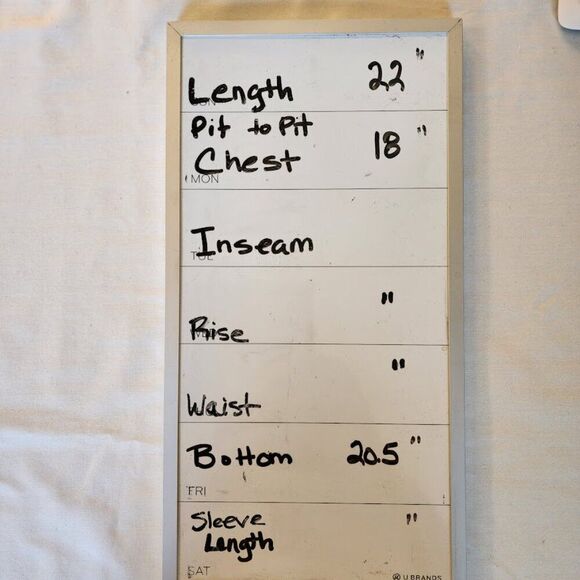 Length 22 "
Pit to Pit
Chest 18 "
MON
Inseam
Rise "
Waist "
Bottom 20.5 "
FRI
Sleeve "
Length
SAT
U BRANDS